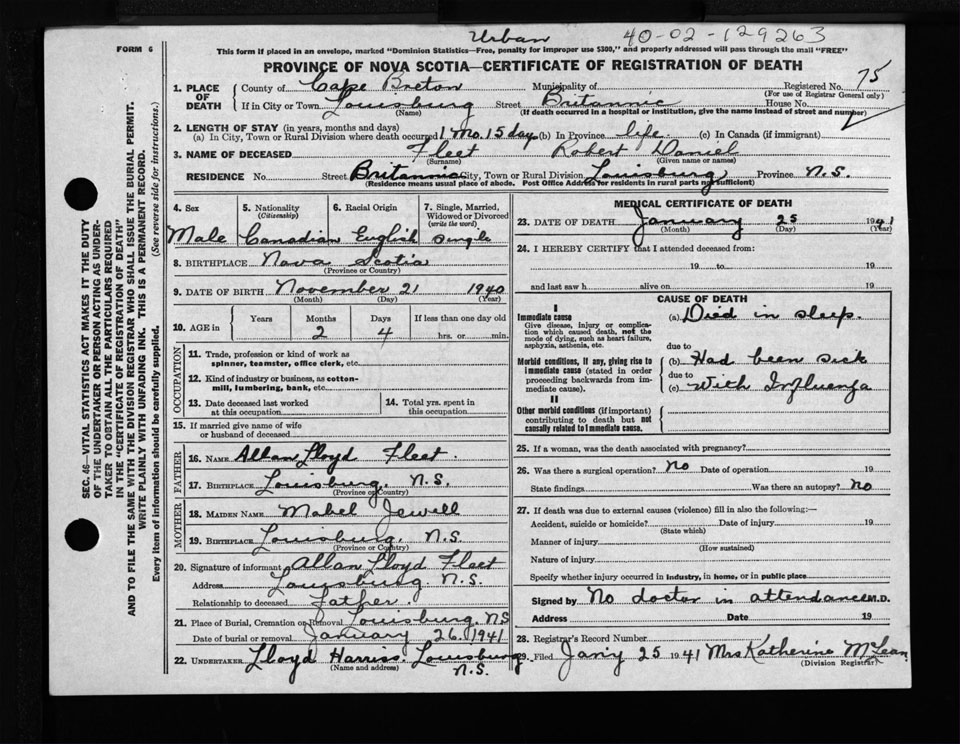 Urban 40-02-129263
FORM 6 This form if placed in an envelope, marked "Dominion Statistics—Free, penalty for improper use $300," and properly addressed will pass through the mail "FREE"
PROVINCE OF NOVA SCOTIA—CERTIFICATE OF REGISTRATION OF DEATH
75
1. PLACE OF DEATH County of Cape Breton Municipality of Registered No.
(For use of Registrar General only)
If in City or Town Louisburg Street Britannic House No.
(Name) (If death occurred in a hospital or institution, give the name instead of street and number)
2. LENGTH OF STAY (in years, months and days)
(a) In City, Town or Rural Division where death occurred 1 Mo. 15 day (b) In Province life. (c) In Canada (if immigrant)
3. NAME OF DECEASED Fleet Robert Daniel
(Surname) (Given name or names)
RESIDENCE No. Street Britannic City, Town or Rural Division Louisburg Province N.S.
(Residence means usual place of abode. Post Office Address for residents in rural parts not sufficient)
4. Sex 5. Nationality (Citizenship) 6. Racial Origin 7. Single, Married, Widowed or Divorced (write the word)
Male Canadian English Single
8. BIRTHPLACE Nova Scotia
(Province or Country)
9. DATE OF BIRTH November 21 1940
(Month) (Day) (Year)
10. AGE in Years Months Days If less than one day old
2 4 hrs. or min.
OCCUPATION
11. Trade, profession or kind of work as spinner, teamster, office clerk, etc.
12. Kind of industry or business, as cotton-mill, lumbering, bank, etc.
13. Date deceased last worked at this occupation
14. Total yrs. spent in this occupation
15. If married give name of wife or husband of deceased
FATHER
16. NAME Allan Lloyd Fleet.
17. BIRTHPLACE Louisburg. N.S.
(Province or Country)
MOTHER
18. MAIDEN NAME Mabel Jewell
19. BIRTHPLACE Louisburg. N.S.
(Province or Country)
20. Signature of informant Allan Lloyd Fleet
Address Louisburg. N.S.
Relationship to deceased Father.
21. Place of Burial, Cremation or Removal Louisburg. N.S
Date of burial or removal January 26. 1941
22. UNDERTAKER Lloyd Harriss. Louisburg
(Name and address) N.S.
MEDICAL CERTIFICATE OF DEATH
23. DATE OF DEATH January 25 1941
(Month) (Day) (Year)
24. I HEREBY CERTIFY that I attended deceased from:
19 to 19
and last saw h alive on 19
CAUSE OF DEATH
I
Immediate cause (a) Died in sleep.
Give disease, injury or complication which caused death, not the mode of dying, such as heart failure, asphyxia, asthenia, etc.
due to
Morbid conditions, if any, giving rise to immediate cause (stated in order proceeding backwards from immediate cause).
(b) Had been sick
due to
(c) with Influenza
II
Other morbid conditions (if important) contributing to death but not causally related to immediate cause.
25. If a woman, was the death associated with pregnancy?
26. Was there a surgical operation? No Date of operation 19
State findings Was there an autopsy? No
27. If death was due to external causes (violence) fill in also the following:—
Accident, suicide or homicide? Date of injury 19
(State which)
Manner of injury
(How sustained)
Nature of injury
Specify whether injury occurred in industry, in home, or in public place
Signed by No doctor in attendance M.D.
Address Date 19
28. Registrar's Record Number
29. Filed Jan'y 25 1941 Mrs Katherine McLean
(Division Registrar)
SEC. 46—VITAL STATISTICS ACT MAKES IT THE DUTY
OF THE UNDERTAKER OR PERSON ACTING AS UNDER-
TAKER TO OBTAIN ALL THE PARTICULARS REQUIRED
IN THE "CERTIFICATE OF REGISTRATION OF DEATH"
AND TO FILE THE SAME WITH THE DIVISION REGISTRAR WHO SHALL ISSUE THE BURIAL PERMIT.
WRITE PLAINLY WITH UNFADING INK. THIS IS A PERMANENT RECORD.
Every item of information should be carefully supplied. (See reverse side for instructions.)